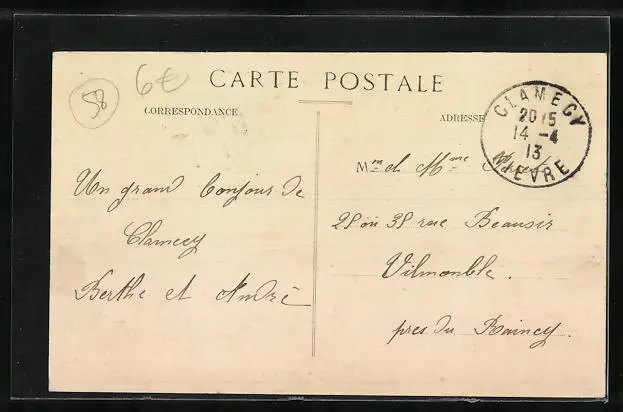 58
6€
CARTE POSTALE
CORRESPONDANCE
ADRESSE
CLAMECY
20 15
14 -4
13
NIEVRE
Un grand bonjour de
Clamecy
Berthe et André
M et Mme
28 ou 38 rue Beausir
Vilmomble.
près du Raincy.